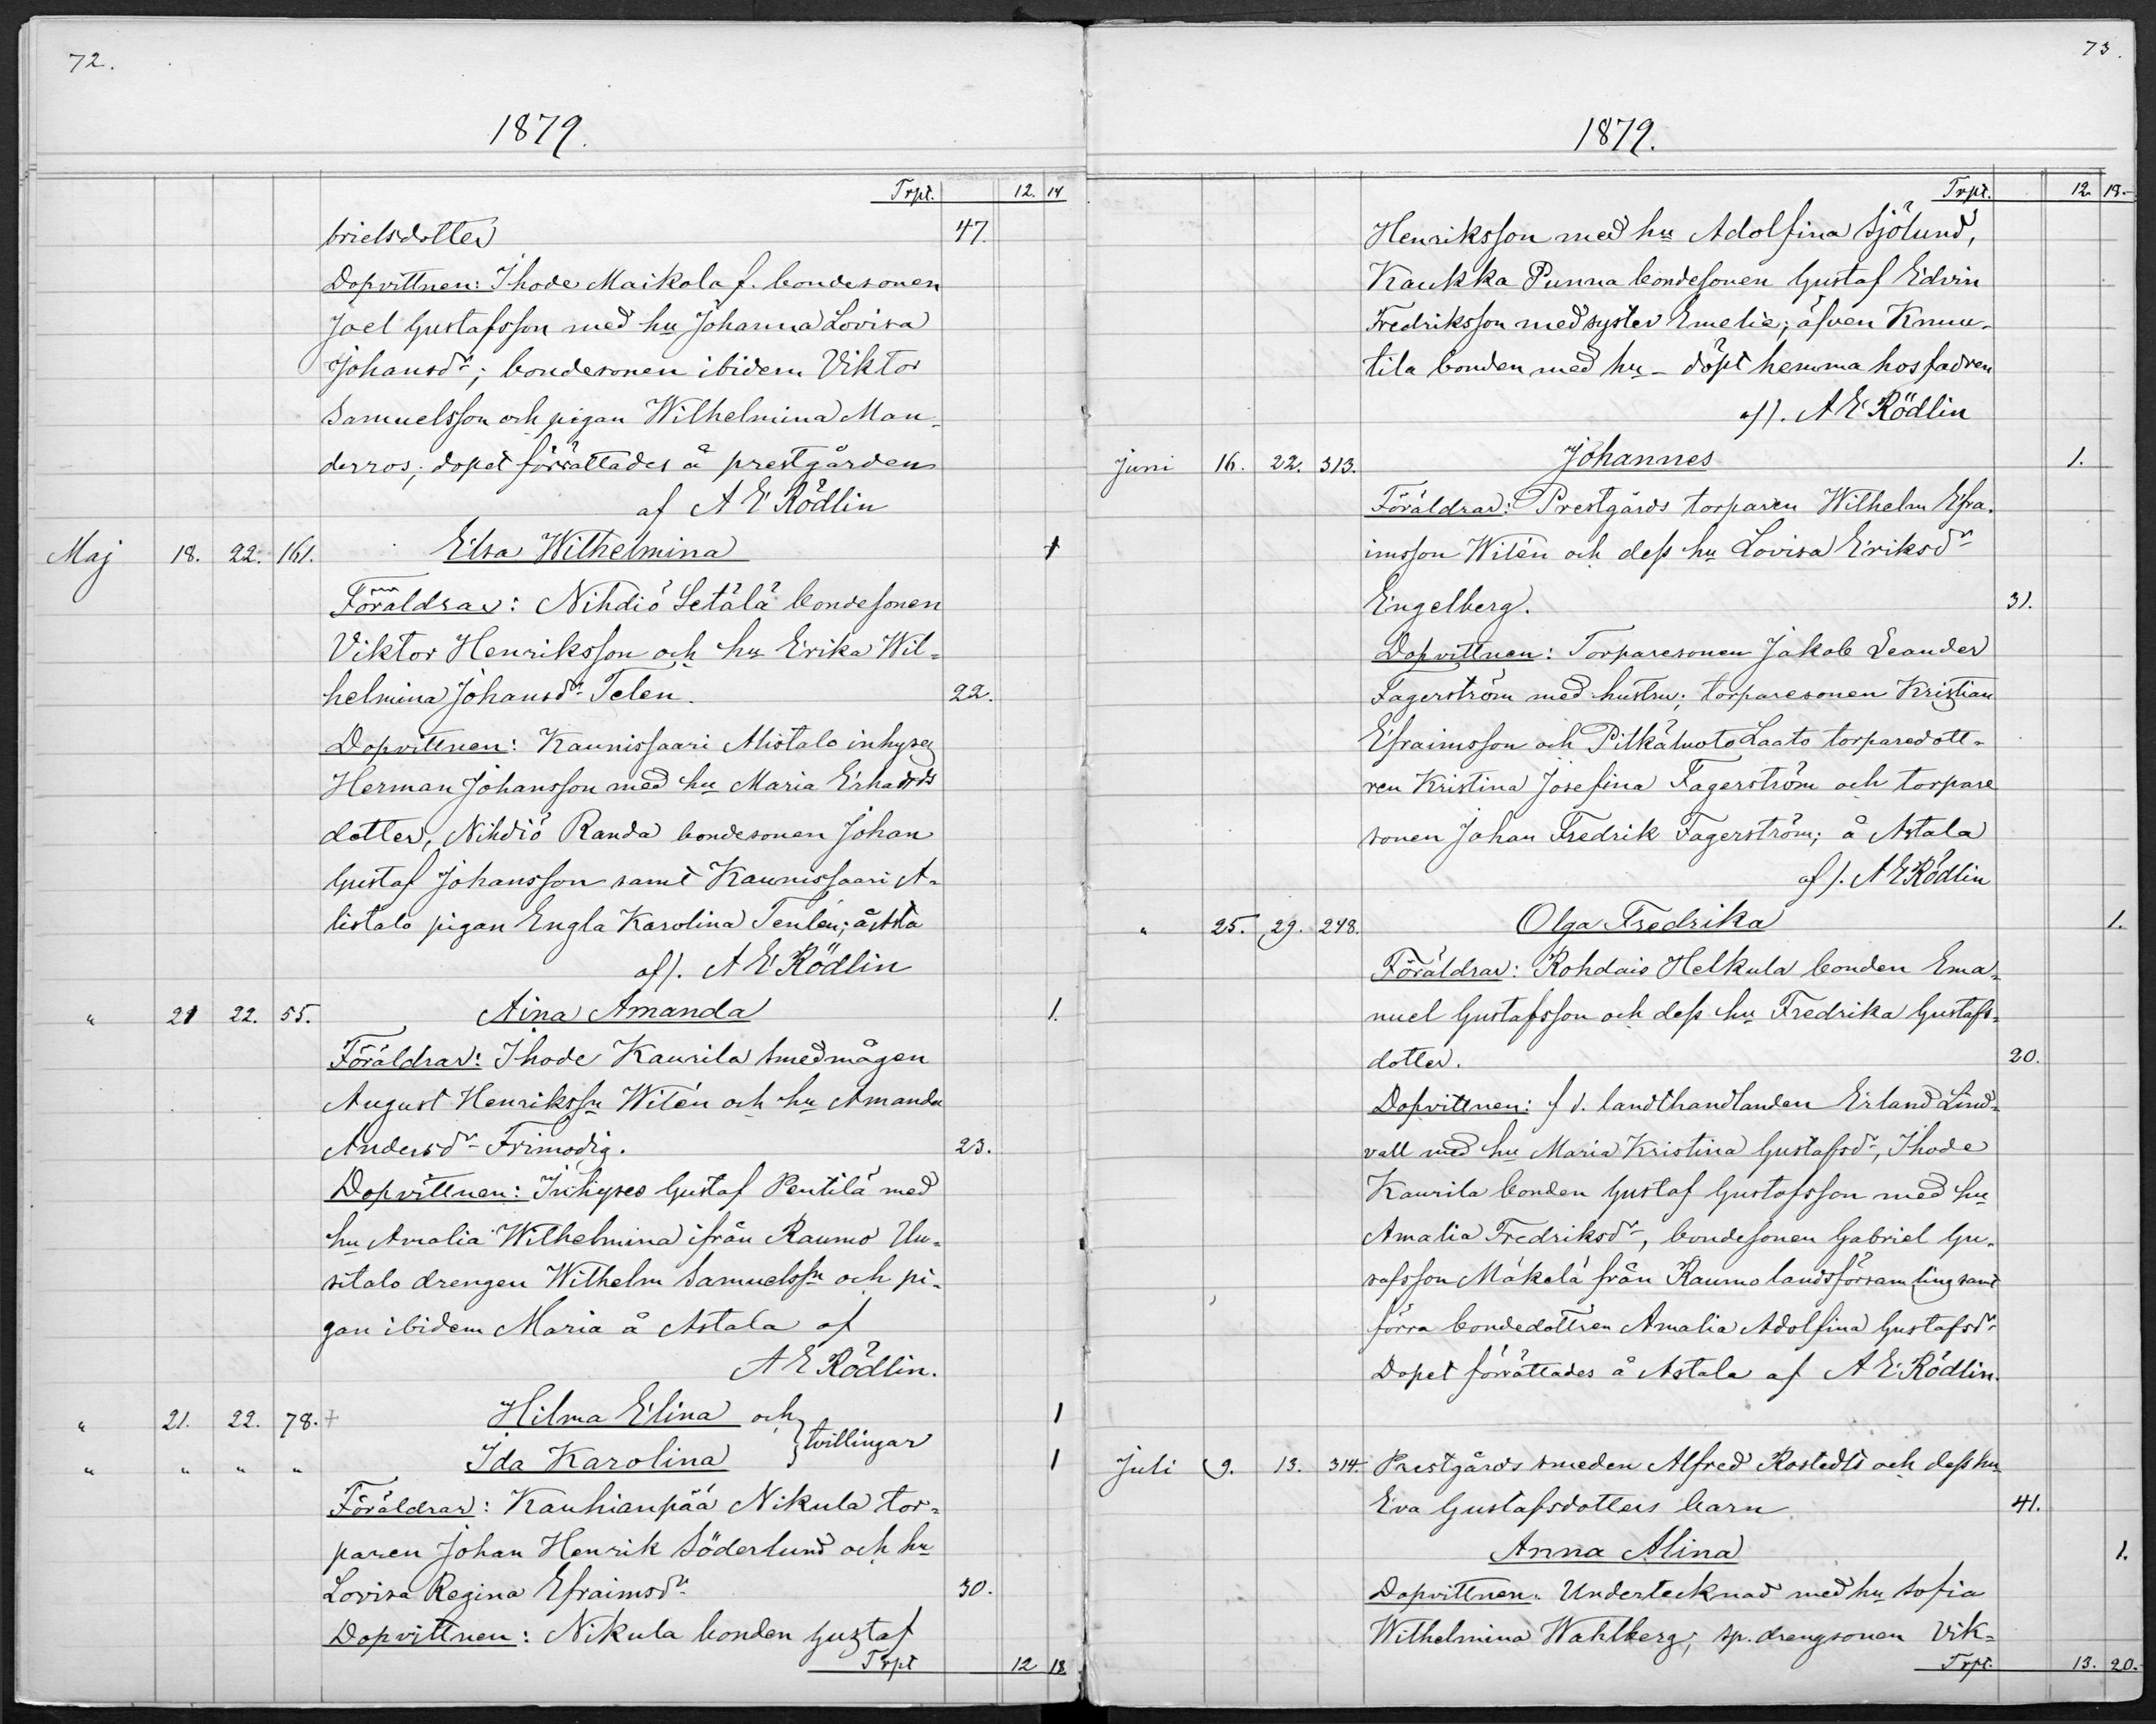 72.
1879.
Trpt. 12. 14
brielsdotter 47.
Dopvittnen: Ihode Maikola f. bondesonen
Joel Gustafsson med hu Johanna Lovisa
Johansdr; bondesonen ibidem Viktor
Samuelsson och pigan Wilhelmina Man-
derros; dopet förrättades å prestgården
af A E Rödlin
Maj 18. 22. 161. Elsa Wilhelmina 1
Föräldrar: Nihdiö Setälä bondesonen
Viktor Henriksson och hu Erika Wil-
helmina Johansdr Telen. 22.
Dopvittnen: Kaunissaari Alistalo inhyses
Herman Johansson med hu Maria Erhards
dotter, Nihdiö Randa bondesonen Johan
Gustaf Johansson samt Kaunissaari A-
listalo pigan Engla Karolina Tenlén;
af). A E Rödlin
" 21 22. 55. Aina Amanda 1.
Föräldrar: Ihode Kaurila smedmågen
August Henrikssn Witén och hu Amanda
Andersdr Frimodig. 23.
Dopvittnen: Inhyses Gustaf Pentilä med
hu Amalia Wilhelmina ifrån Raumo Uu-
sitalo drengen Wilhelm Samuelssn och pi-
gan ibidem Maria å Astala af
A E Rödlin.
" 21. 22. 78. + Hilma Elina och 1
} tvillingar
" " " " Ida Karolina 1
Föräldrar: Kauhianpää Nikula tor-
paren Johan Henrik Söderlund och hu
Lovisa Regina Efraimsdr 30.
Dopvittnen: Nikula bonden Gustaf
Trpt 12 18
73.
1879.
Trpt. 12. 18.
Henriksson med hu Adolfina Sjölund,
Kaukka Punna bondesonen Gustaf Edvin
Fredriksson med syster Emelie; äfven Knuu-
tila bonden med hu - döpt hemma hos fadren
af). A E Rödlin
Juni 16. 22. 313. Johannes 1.
Föräldrar: Prestgårds torparen Wilhelm Efra-
imsson Witén och dess hu Lovisa Eriksdr
Engelberg. 31.
Dopvittnen: Torparesonen Jakob Leander
Fagerström med hustru; torparesonen Kristian
Efraimsson och Pitkäluoto Laato torparedott-
ren Kristina Josefina Fagerström och torpare
sonen Johan Fredrik Fagerström; å Astala
af). A E Rödlin
" 25. 29. 248. Olga Fredrika 1.
Föräldrar: Rohdais Helkula bonden Ema-
nuel Gustafsson och dess hu Fredrika Gustafs-
dotter. 20.
Dopvittnen: f d. landthandlanden Erland Lind-
vall med hu Maria Kristina Gustafsdr, Ihode
Kaurila bonden Gustaf Gustafsson med hu
Amalia Fredriksdr, bondesonen Gabriel Gu-
stafsson Mäkelä från Raumo landsförsamling samt
förra bondedottren Amalia Adolfina Gustafsdr
Dopet förrättades å Astala af A E Rödlin.
Juli 9. 13. 314. Prestgårds smeden Alfred Rostedts och dess hu
Eva Gustafsdotters barn 41.
Anna Alina 1.
Dopvittnen: Undertecknad med hu Sofia
Wilhelmina Wahlberg; sp. drengsonen Vik-
Trpt. 13. 20.